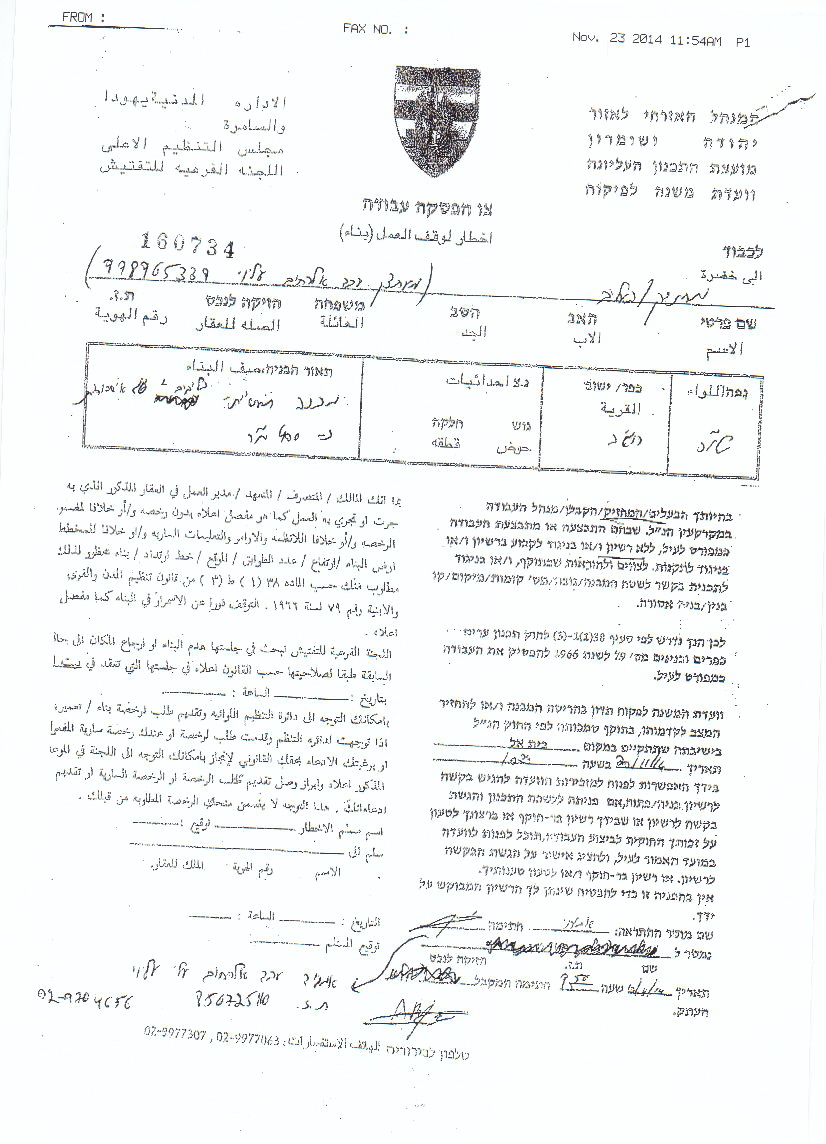 FROM :
FAX NO. :
Nov. 23 2014 11:54AM P1
המנהל האזרחי לאזור
יהודה ושומרון
מועצת התכנון העליונה
וועדת משנה לפיקוח
الاداره المدنية يهودا
والسامرة
مجلس التنظيم الاعلى
اللجنه الفرعيه للتفتيش
צו הפסקת עבודה
اخطار لوقف العمل (بناء)
160734
לכבוד
الى حضرة
998965339
שם פרטי האב השב משפחה הזיקה לנכס ת.ז.
الاسم الاب الجد العائلة الصله للعقار رقم الهوية
נפה اللواء
כפר/ ישוב
القرية
נ.צ احداثيات
גוש חלקה
حوض قطعه
תאור הבניה وصف البناء
בהיותך הבעלים/המחזיק/הקבלן/מנהל העבודה
במקרקעין הנ"ל, שבהם התבצעה או מתבצעת העבודה
כמפורט לעיל, ללא רשיון ו/או בניגוד לקבוע ברשיון ו/או
בניגוד לתקנות, לצווים ולהוראות שבתוקף, ו/או בניגוד
לתכנית בקשר לשטח המבנה/גובה/מס' קומות/מיקום/קו
בנין/בניה אסורה.
לכן הנך נדרש לפי סעיף 38(1)-(3) לחוק תכנון ערים
כפרים ובניינים מס' 79 לשנת 1966 להפסיק את העבודה
כמפורט לעיל.
וועדת המשנה לפקוח תדון בהריסת המבנה ו/או להחזיר
המצב לקדמותו, בתוקף סמכותה לפי החוק הנ"ל
בישיבתה שתתקיים במקום בית אל
תאריך בשעה
בידך האפשרות לפנות למזכירות הוועדה להגיש בקשה
לרשיון בניה/פתוח, אם פנית ללשכת התכנון והגשת
בקשה לרשיון או שבידך רשיון בר-תוקף או ברצונך לטעון
על זכותך החוקית לביצוע העבודה, תוכל לפנות לוועדה
במועד האמור לעיל, ולהציג אישור על הגשת הבקשה
לרשיון, או רשיון בר-תוקף ו/או לטעון טענותיך.
אין בהפניה זו כדי להבטיח שינתן לך הרשיון המבוקש על
ידך.
שם מוסר ההתראה: חתימה
נמסר ל
שם ת.ז. הזיקה לנכס
תאריך שעה חתימת המקבל
העתק.
بما انك المالك / المتصرف / المتعهد / مدير العمل في العقار المذكور الذي به
جرت او تجري به العمل كما هو مفصل اعلاه بدون رخصه و/أو خلافا للمفسر
الرخصه و/أو خلافا للانظمة والاوامر والتعليمات الساريه و/او خلافا للمخطط
ارض البناء / ارتفاع / عدد الطوابق / الموقع / خط ارتداد / بناء محظور لذلك
مطلوب منك حسب الماده ٣٨ (١) ط (٣) من قانون تنظيم المدن والقرى
والابنية رقم ٧٩ لسنة ١٩٦٦ . التوقف فورا عن الاستمرار في البناء كما مفصل
اعلاه .
اللجنة الفرعية للتفتيش تبحث في جلستها هدم البناء او ارجاع المكان الى حالته
السابقة طبقا لصلاحيتها حسب القانون اعلاه في جلستها التي تنعقد في
بتاريخ : الساعة :
بامكانك التوجه الى دائرة التنظيم اللوائيه وتقديم طلب لرخصة بناء / تعمير،
اذا توجهت لدائره التنظيم وقدمت طلب لرخصة او عندك رخصة سارية المفعول
او برغبتك الادعاء بحقك القانوني لإنجاز بامكانك التوجه الى اللجنة في الموعد
المذكور اعلاه وابراز وصل تقديم طلب الرخصه او الرخصة السارية او تقديم
ادعاءاتك . هذا التوجه لا يضمن منحك الرخصة المطلوبه من قبلك .
اسم مسلم الاخطار توقيع :
سلم الى
الاسم رقم الهوية الملك للعقار.
التاريخ : الساعة :
توقيع المستلم
02-9704656
ת.ז.
טלפון לבירורים الهاتف الاستفسارات: 02-9977063 , 02-9977307